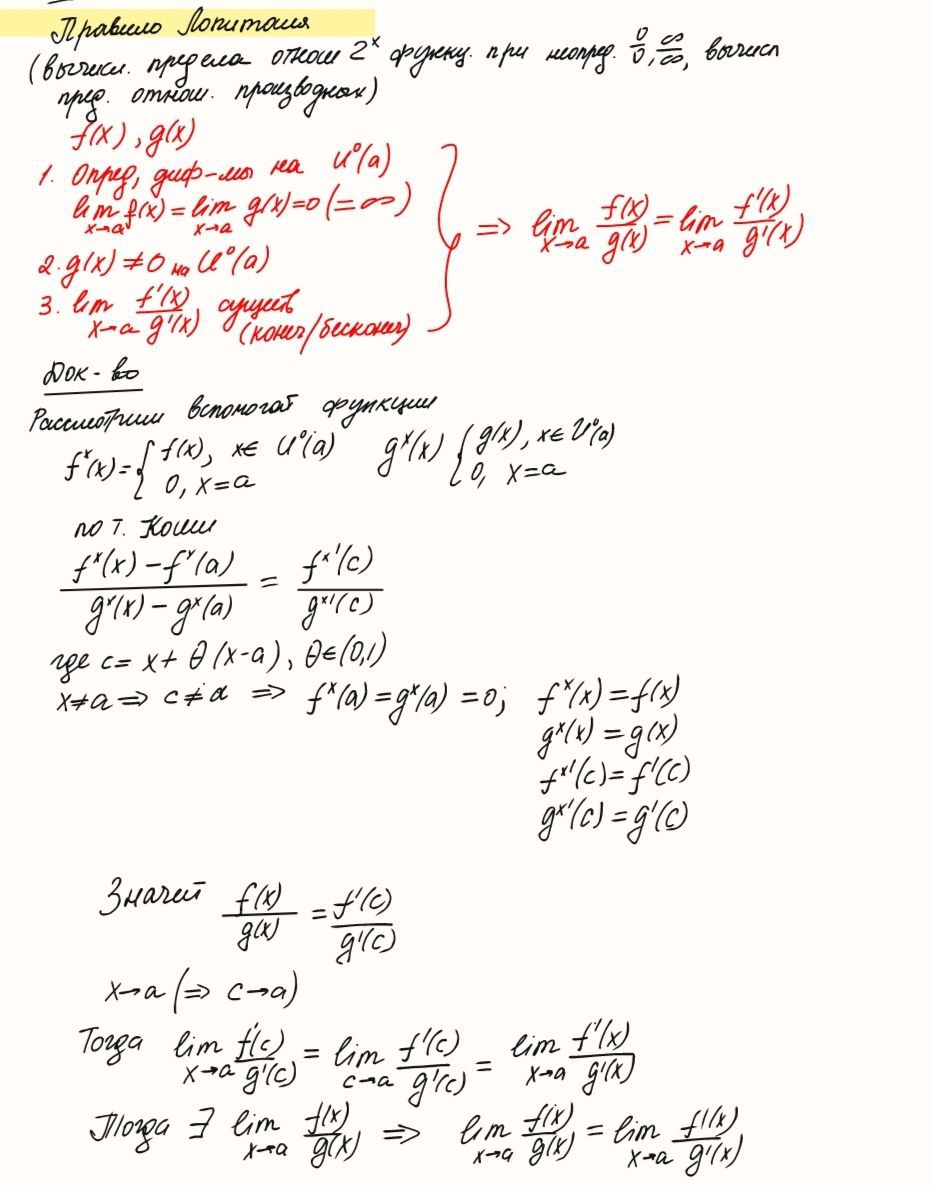 Правило Лопиталя
(вычисл. предела отнош 2ˣ функц. при неопред. 0/0, ∞/∞, вычисл
пред. отнош. производных)
f(x), g(x)
1. Опред, диф-мы на U°(a)
lim_{x→a} f(x) = lim_{x→a} g(x) = 0 (= ∞)
2. g(x) ≠ 0 на U°(a)
3. lim_{x→a} f'(x)/g'(x) сущест
(конеч/бесконеч)
} ⇒ lim_{x→a} f(x)/g(x) = lim_{x→a} f'(x)/g'(x)
Док-во
Рассмотрим вспомогат функции
fˣ(x) = { f(x), x∈ U°(a) gˣ(x) { g(x), x∈ U°(a)
0, x=a 0, x=a
по т. Коши
(fˣ(x) − fˣ(a))/(gˣ(x) − gˣ(a)) = fˣ'(c)/gˣ'(c)
где c = x + θ(x-a), θ∈(0,1)
x≠a ⇒ c≠a ⇒ fˣ(a) = gˣ(a) = 0; fˣ(x) = f(x)
gˣ(x) = g(x)
fˣ'(c) = f'(c)
gˣ'(c) = g'(c)
Значит f(x)/g(x) = f'(c)/g'(c)
x→a (⇒ c→a)
Тогда lim_{x→a} f'(c)/g'(c) = lim_{c→a} f'(c)/g'(c) = lim_{x→a} f'(x)/g'(x)
Тогда ∃ lim_{x→a} f(x)/g(x) ⇒ lim_{x→a} f(x)/g(x) = lim_{x→a} f'(x)/g'(x)